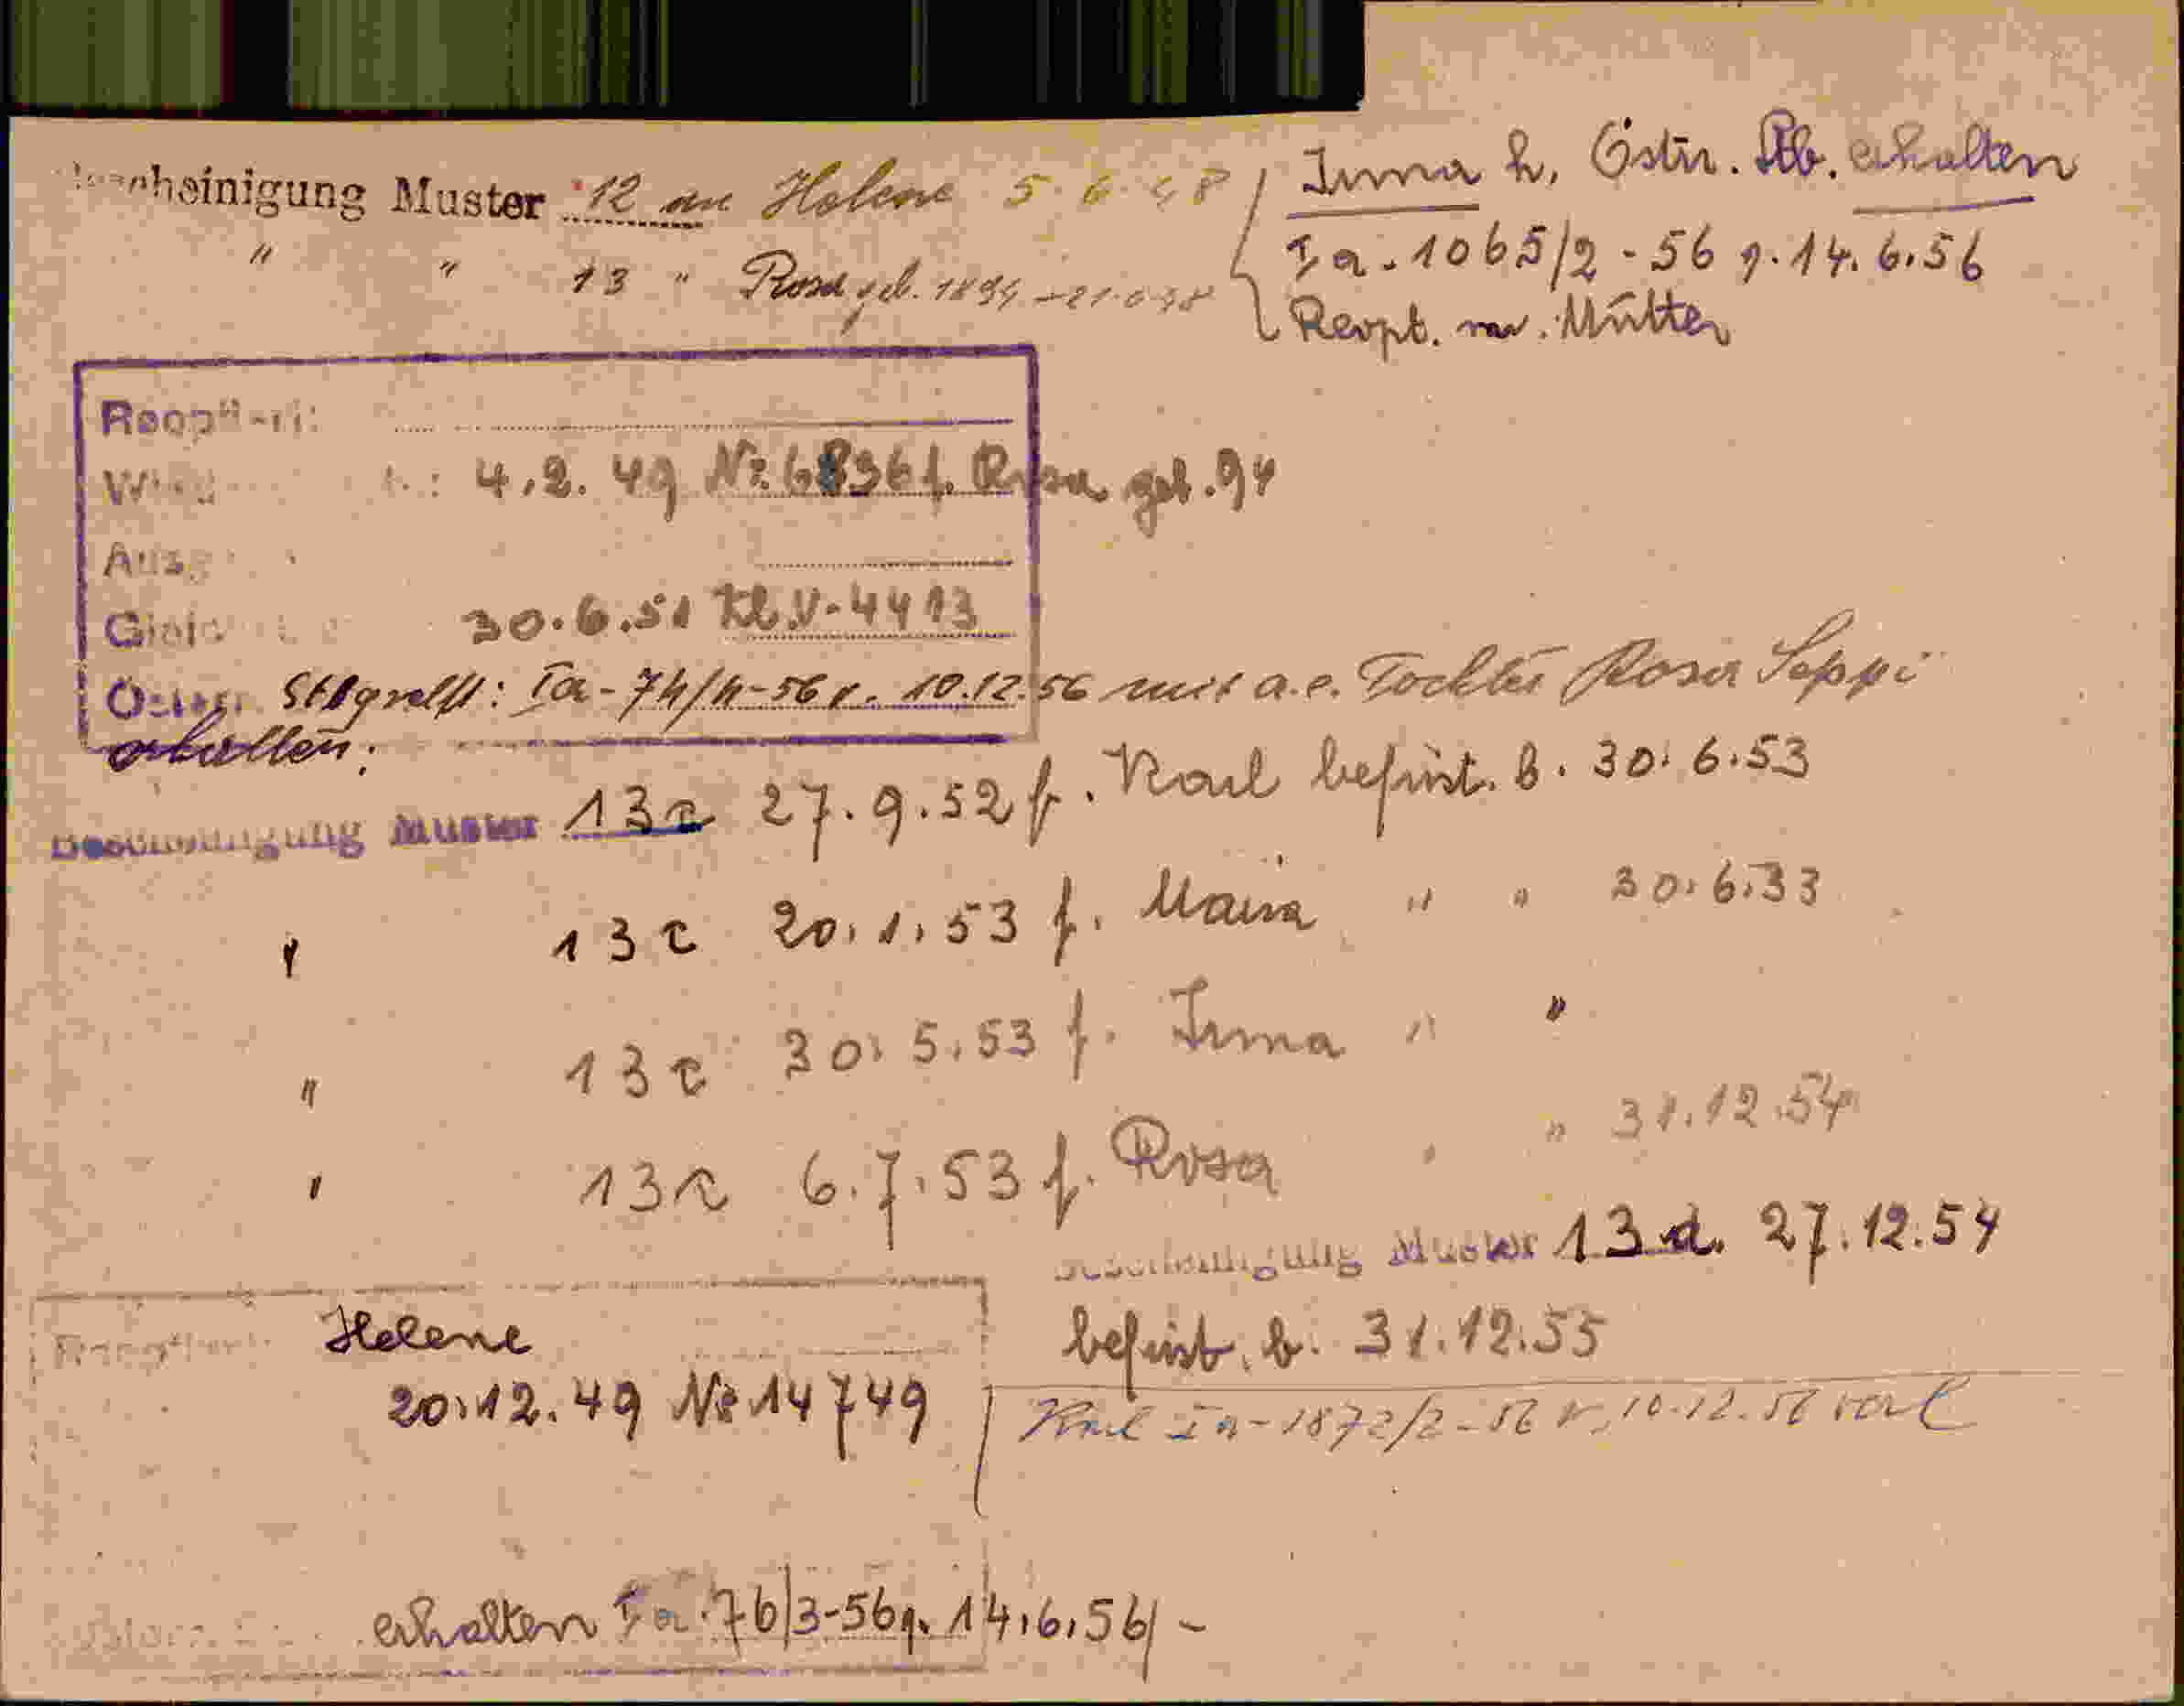 Bescheinigung Muster 12 an Helene 5.6.48
" " 13 " Rosa geb. 1894
Irma h. Östr. Stb. erhalten
Ia-1065/2-56 v. 14.6.56
Reopt. m. Mutter
Reoptiert:
4.2.49 Nr. 6836 f. Rosa geb. 94
30.6.51 Zl. V-4413
Österr. Ia-74/4-56 v. 10.12.56 mit a.e. Tochter Rosa Seppi
erhalten.
Bescheinigung Muster 13c 27.9.52 f. Karl befrist. b. 30.6.53
" 13c 20.1.53 f. Maria " " 30.6.53
" 13c 30.5.53 f. Irma " "
" 13c 6.7.53 f. Rosa " " 31.12.54
Bescheinigung Muster 13d. 27.12.54
befrist. b. 31.12.55
Reoptiert: Helene
20.12.49 Nr. 14749
Karl Ia-1872/2-56 v. 10.12.56
erhalten Ia-76/3-56 v. 14.6.56 -